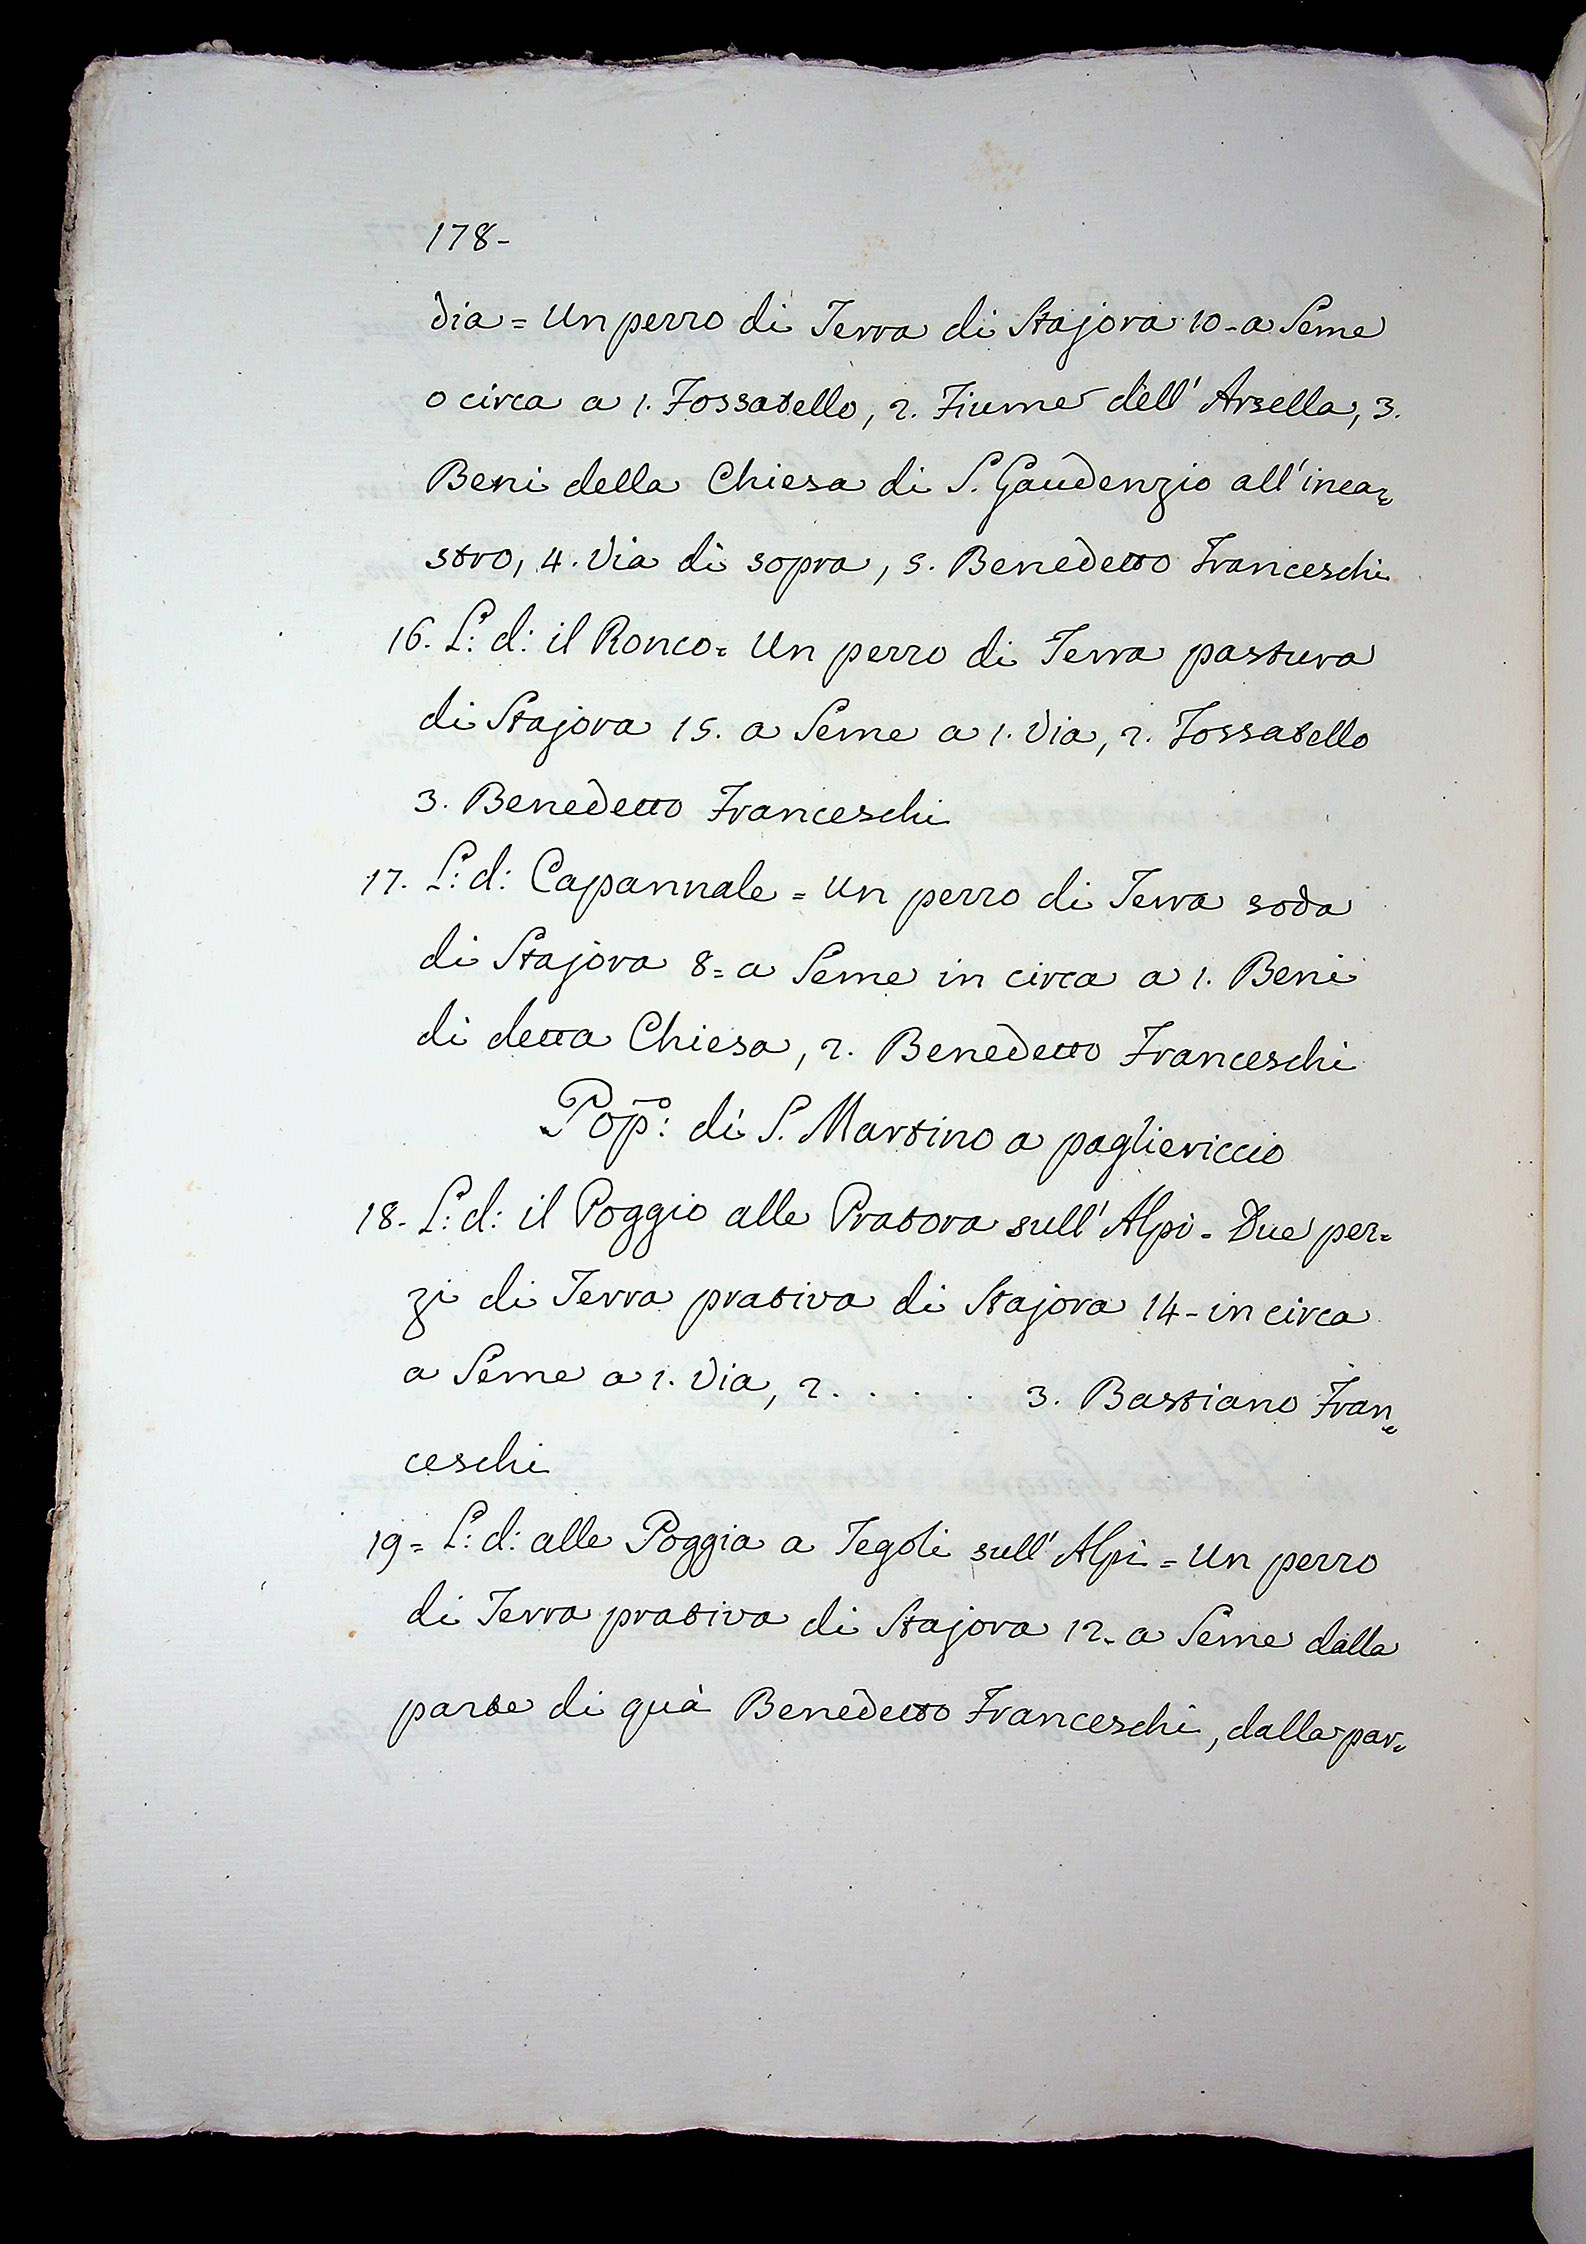 178-
dia = Un pezzo di Terra di Stajora 10 - a Seme
o circa a 1. Fossatello, 2. Fiume dell' Arsella, 3.
Beni della Chiesa di S. Gaudenzio all' inca=
stro, 4. Via di sopra, 5. Benedetto Franceschi
16. L: d: il Ronco = Un pezzo di Terra pastura
di Stajora 15. a Seme a 1. Via, 2. Fossatello
3. Benedetto Franceschi
17. L: d: Capannale = Un pezzo di Terra soda
di Stajora 8 = a Seme in circa a 1. Beni
di detta Chiesa, 2. Benedetto Franceschi
Pop̃o: di S. Martino a pagliericcio
18. L: d: il Poggio alle Pratora sull' Alpi - Due pez=
zi di Terra prativa di Stajora 14 - in circa
a Seme a 1. Via, 2. . . . . 3. Bastiano Fran=
ceschi
19 = L: d: alle Poggia a Tegoli sull' Alpi = Un pezzo
di Terra prativa di Stajora 12. a Seme dalla
parte di quà Benedetto Franceschi, dalla par=